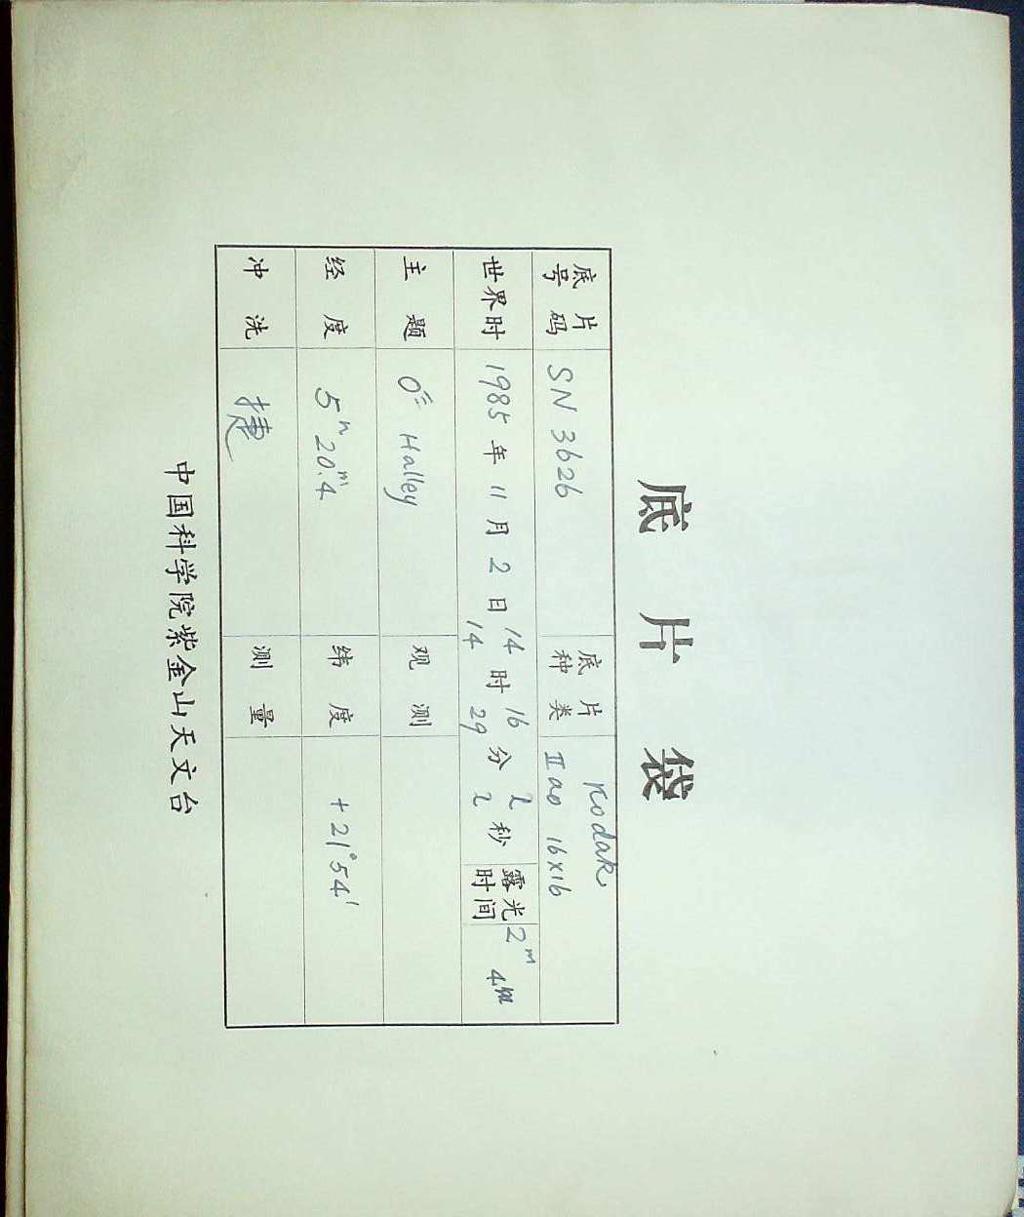 底片袋
底片号码 SN 3626 底片种类 Kodak IIao 16×16
世界时 1985年11月2日14时16分2秒 露光时间 2m
14 29 2 4m
主题 Halley 观测
经度 5h 20m.4 纬度 +21°54′
冲洗 捷 测量
中国科学院紫金山天文台